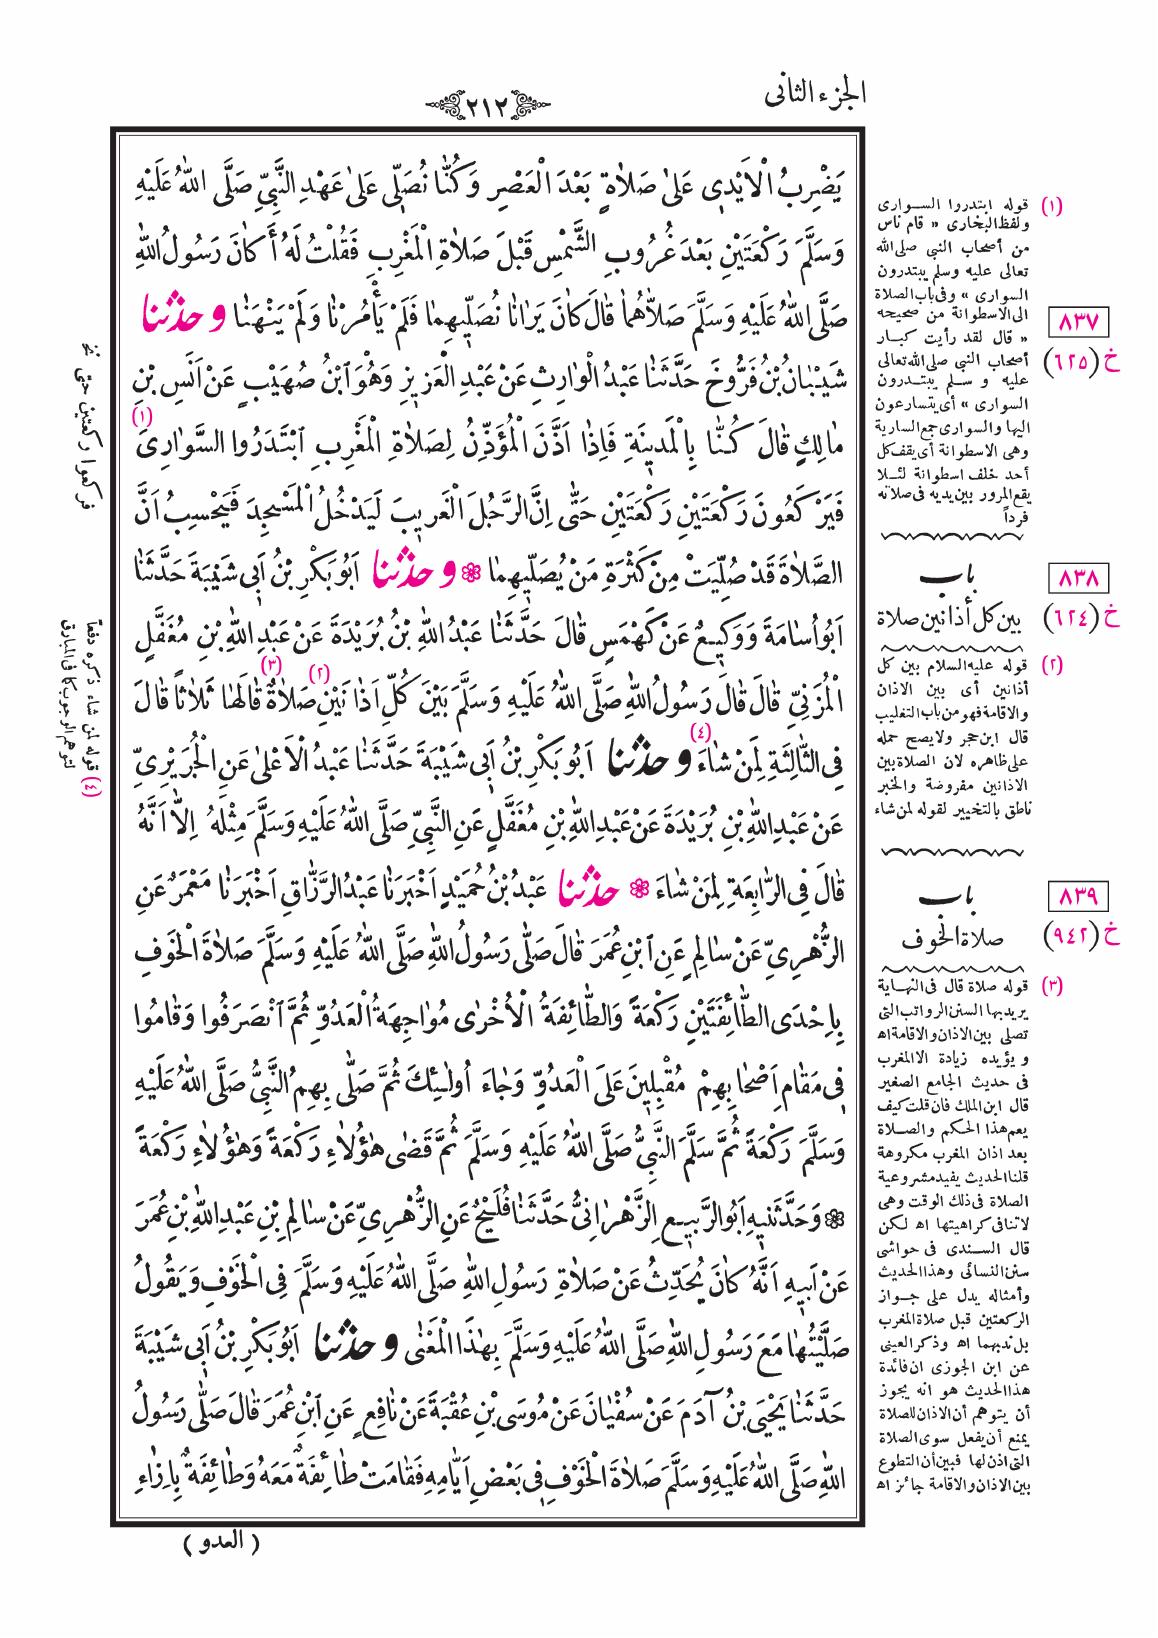 الجزء الثانى
٢١٢
يَضْرِبُ الْاَيْدِى عَلىٰ صَلاٰةٍ بَعْدَ الْعَصْرِ وَكُنّٰا نُصَلِّى عَلىٰ عَهْدِ النَّبِىِّ صَلَّى اللهُ عَلَيْهِ
وَسَلَّمَ رَكْعَتَيْنِ بَعْدَ غُرُوبِ الشَّمْسِ قَبْلَ صَلاٰةِ الْمَغْرِبِ فَقُلْتُ لَهُ أَكٰانَ رَسُولُ اللهِ
صَلَّى اللهُ عَلَيْهِ وَسَلَّمَ صَلاّٰهُمٰا قٰالَ كٰانَ يَرٰانٰا نُصَلِّيهِمٰا فَلَمْ يَأْمُرْنٰا وَلَمْ يَنْهَنٰا وحدثنا
شَيْبٰانُ بْنُ فَرُّوخَ حَدَّثَنٰا عَبْدُ الْوٰارِثِ عَنْ عَبْدِ الْعَزِيزِ وَهُوَ ابْنُ صُهَيْبٍ عَنْ اَنَسِ بْنِ
مٰالِكٍ قٰالَ كُنّٰا بِالْمَدِينَةِ فَاِذٰا اَذَّنَ الْمُؤَذِّنُ لِصَلاٰةِ الْمَغْرِبِ ابْتَدَرُوا السَّوٰارِىَ (١)
فَيَرْكَعُونَ رَكْعَتَيْنِ رَكْعَتَيْنِ حَتّٰى اِنَّ الرَّجُلَ الْغَرِيبَ لَيَدْخُلُ الْمَسْجِدَ فَيَحْسِبُ اَنَّ
الصَّلاٰةَ قَدْ صُلِّيَتْ مِنْ كَثْرَةِ مَنْ يُصَلِّيهِمٰا ❁ وحدثنا اَبُو بَكْرِ بْنُ اَبِى شَيْبَةَ حَدَّثَنٰا
اَبُو اُسٰامَةَ وَوَكِيعٌ عَنْ كَهْمَسٍ قٰالَ حَدَّثَنٰا عَبْدُ اللهِ بْنُ بُرَيْدَةَ عَنْ عَبْدِ اللهِ بْنِ مُغَفَّلٍ
الْمُزَنِىِّ قٰالَ قٰالَ رَسُولُ اللهِ صَلَّى اللهُ عَلَيْهِ وَسَلَّمَ بَيْنَ كُلِّ اَذٰانَيْنِ (٢) صَلاٰةٌ (٣) قٰالَهٰا ثَلاٰثاً قٰالَ
فِى الثّٰالِثَةِ لِمَنْ شٰاءَ (٤) وحدثنا اَبُو بَكْرِ بْنُ اَبِى شَيْبَةَ حَدَّثَنٰا عَبْدُ الْاَعْلىٰ عَنِ الْجُرَيْرِىِّ
عَنْ عَبْدِ اللهِ بْنِ بُرَيْدَةَ عَنْ عَبْدِ اللهِ بْنِ مُغَفَّلٍ عَنِ النَّبِىِّ صَلَّى اللهُ عَلَيْهِ وَسَلَّمَ مِثْلَهُ اِلاّٰ اَنَّهُ
قٰالَ فِى الرّٰابِعَةِ لِمَنْ شٰاءَ ❁ حدثنا عَبْدُ بْنُ حُمَيْدٍ اَخْبَرَنٰا عَبْدُ الرَّزّٰاقِ اَخْبَرَنٰا مَعْمَرٌ عَنِ
الزُّهْرِىِّ عَنْ سٰالِمٍ عَنِ ابْنِ عُمَرَ قٰالَ صَلّٰى رَسُولُ اللهِ صَلَّى اللهُ عَلَيْهِ وَسَلَّمَ صَلاٰةَ الْخَوْفِ
بِاِحْدَى الطّٰائِفَتَيْنِ رَكْعَةً وَالطّٰائِفَةُ الْاُخْرٰى مُوٰاجِهَةُ الْعَدُوِّ ثُمَّ انْصَرَفُوا وَقٰامُوا
فِى مَقٰامِ اَصْحٰابِهِمْ مُقْبِلِينَ عَلَى الْعَدُوِّ وَجٰاءَ اُولٰئِكَ ثُمَّ صَلّٰى بِهِمُ النَّبِىُّ صَلَّى اللهُ عَلَيْهِ
وَسَلَّمَ رَكْعَةً ثُمَّ سَلَّمَ النَّبِىُّ صَلَّى اللهُ عَلَيْهِ وَسَلَّمَ ثُمَّ قَضٰى هٰؤُلاٰءِ رَكْعَةً وَهٰؤُلاٰءِ رَكْعَةً
❁ وَحَدَّثَنِيهِ اَبُو الرَّبِيعِ الزَّهْرٰانِىُّ حَدَّثَنٰا فُلَيْحٌ عَنِ الزُّهْرِىِّ عَنْ سٰالِمِ بْنِ عَبْدِ اللهِ بْنِ عُمَرَ
عَنْ اَبِيهِ اَنَّهُ كٰانَ يُحَدِّثُ عَنْ صَلاٰةِ رَسُولِ اللهِ صَلَّى اللهُ عَلَيْهِ وَسَلَّمَ فِى الْخَوْفِ وَيَقُولُ
صَلَّيْتُهٰا مَعَ رَسُولِ اللهِ صَلَّى اللهُ عَلَيْهِ وَسَلَّمَ بِهٰذَا الْمَعْنٰى وحدثنا اَبُو بَكْرِ بْنُ اَبِى شَيْبَةَ
حَدَّثَنٰا يَحْيَى بْنُ آدَمَ عَنْ سُفْيٰانَ عَنْ مُوسَى بْنِ عُقْبَةَ عَنْ نٰافِعٍ عَنِ ابْنِ عُمَرَ قٰالَ صَلّٰى رَسُولُ
اللهِ صَلَّى اللهُ عَلَيْهِ وَسَلَّمَ صَلاٰةَ الْخَوْفِ فِى بَعْضِ اَيّٰامِهِ فَقٰامَتْ طٰائِفَةٌ مَعَهُ وَطٰائِفَةٌ بِاِزٰاءِ
( العدو )
(١) قوله ابتدروا السوارى
ولفظ البخارى « قام ناس
من أصحاب النبى صلى الله
تعالى عليه وسلم يبتدرون
السوارى » وفى باب الصلاة
الى الاسطوانة من صحيحه
« قال لقد رأيت كبار
أصحاب النبى صلى الله تعالى
عليه وسلم يبتدرون
السوارى » أى يتسارعون
اليها والسوارى جمع السارية
وهى الاسطوانة أى يقف كل
أحد خلف اسطوانة لئلا
يقع المرور بين يديه فى صلاته
فرداً
٨٣٧
خ (٦٢٥)
باب
بين كل أذانين صلاة
٨٣٨
خ (٦٢٤)
(٢) قوله عليه السلام بين كل
أذانين أى بين الاذان
والاقامة فهو من باب التغليب
قال ابن حجر ولا يصح حمله
على ظاهره لان الصلاة بين
الاذانين مفروضة والخبر
ناطق بالتخيير لقوله لمن شاء
باب
صلاة الخوف
٨٣٩
خ (٩٤٢)
(٣) قوله صلاة قال فى النهاية
يريد بها السنن الرواتب التى
تصلى بين الاذان والاقامة اه
ويؤيده زيادة الا المغرب
فى حديث الجامع الصغير
قال ابن الملك فان قلت كيف
يعم هذا الحكم والصلاة
بعد اذان المغرب مكروهة
قلنا الحديث يفيد مشروعية
الصلاة فى ذلك الوقت وهى
لا تنافى كراهيتها اه لكن
قال السندى فى حواشى
سنن النسائى وهذا الحديث
وأمثاله يدل على جواز
الركعتين قبل صلاة المغرب
بل ندبهما اه وذكر العينى
عن ابن الجوزى ان فائدة
هذا الحديث هو انه يجوز
أن يتوهم أن الاذان للصلاة
يمنع أن يفعل سوى الصلاة
التى اذن لها فبين أن التطوع
بين الاذان والاقامة جائز اه
فركعوا ركعتين حتى نخ
(٤) قوله لمن شاء ذكره دفعاً
لتوهم الوجوب كما فى المبارق